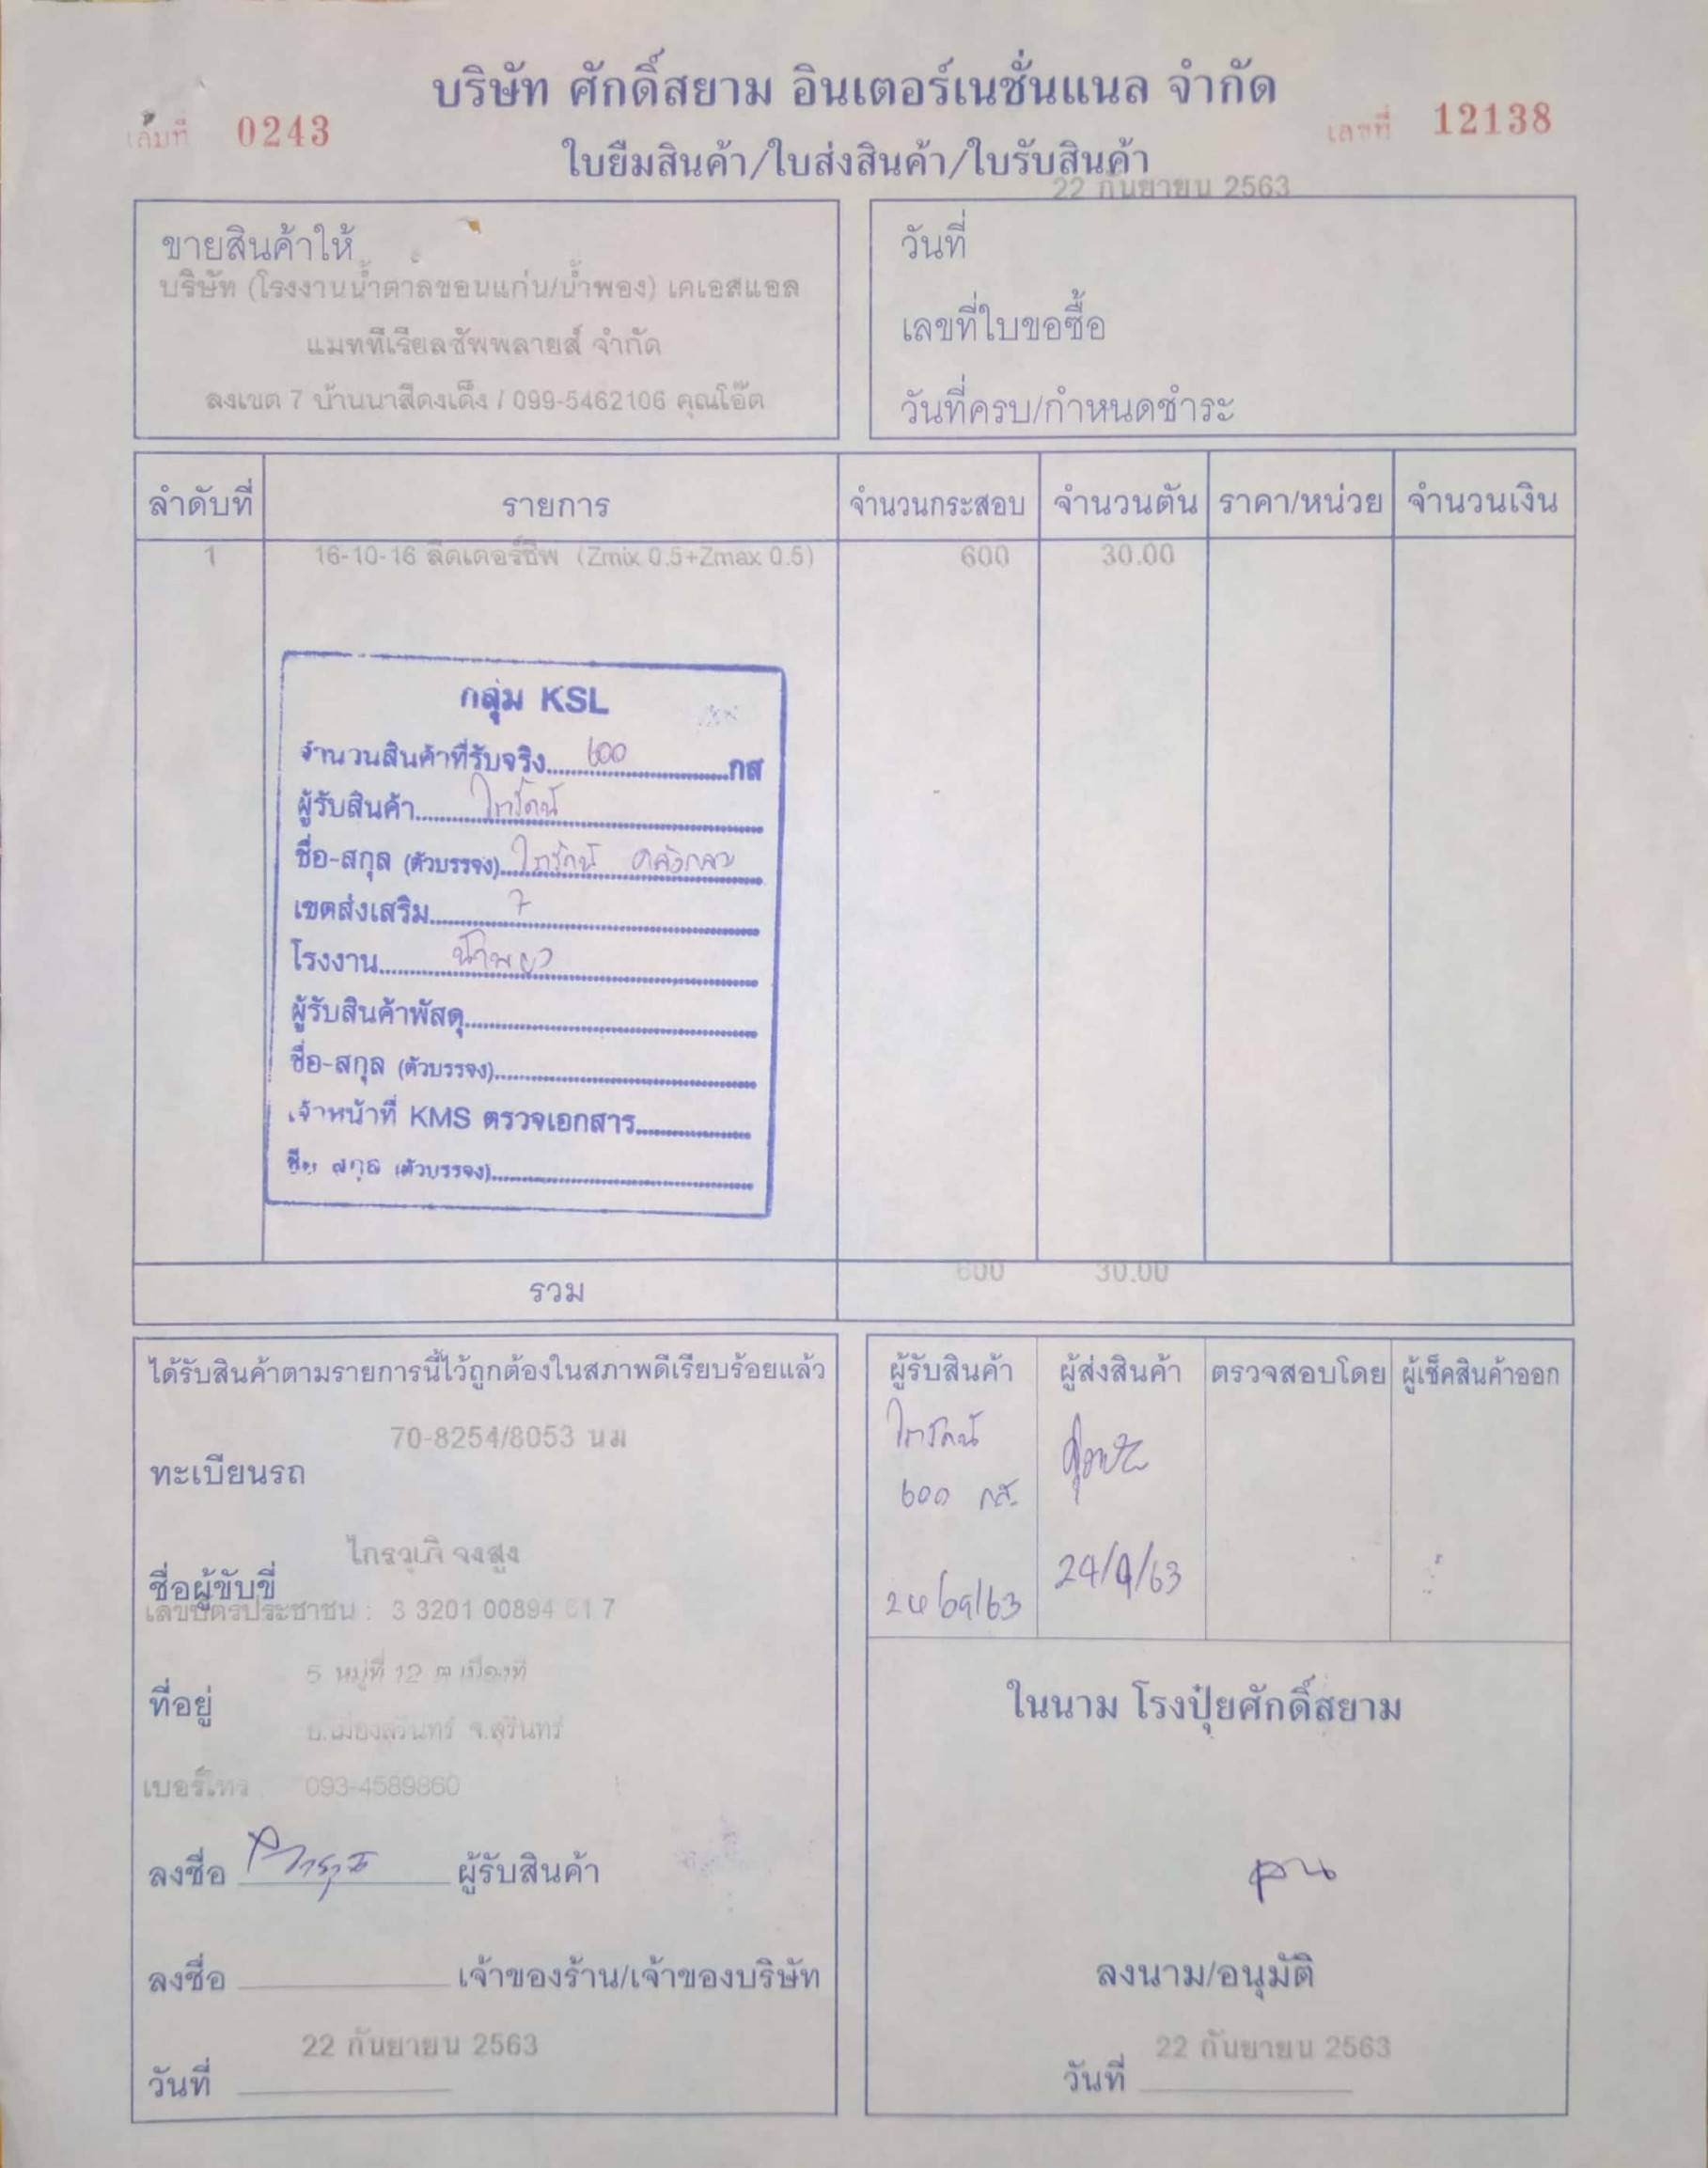 บริษัท ศักดิ์สยาม อินเตอร์เนชั่นแนล จำกัด
เล่มที่ 0243
เลขที่ 12138
ใบยืมสินค้า/ใบส่งสินค้า/ใบรับสินค้า
22 กันยายน 2563
ขายสินค้าให้
บริษัท (โรงงานน้ำตาลขอนแก่น/น้ำพอง) เคเอสแอล
แมททีเรียลซัพพลายส์ จำกัด
ลงเขต 7 บ้านนาสีดงเค็ง / 099-5462106 คุณโอ๊ต
วันที่
เลขที่ใบขอซื้อ
วันที่ครบ/กำหนดชำระ
ลำดับที่ รายการ จำนวนกระสอบ จำนวนตัน ราคา/หน่วย จำนวนเงิน
1 16-10-16 ลีดเดอร์ชีพ (Zmix 0.5+Zmax 0.5) 600 30.00
กลุ่ม KSL
จำนวนสินค้าที่รับจริง 600 กส
ผู้รับสินค้า
ชื่อ-สกุล (ตัวบรรจง)
เขตส่งเสริม 7
โรงงาน น้ำพอง
ผู้รับสินค้าพัสดุ
ชื่อ-สกุล (ตัวบรรจง)
เจ้าหน้าที่ KMS ตรวจเอกสาร
ชื่อ สกุล (ตัวบรรจง)
รวม 600 30.00
ได้รับสินค้าตามรายการนี้ไว้ถูกต้องในสภาพดีเรียบร้อยแล้ว
70-8254/8053 นม
ทะเบียนรถ
ไกรวุฒิ จงสูง
ชื่อผู้ขับขี่
เลขบัตรประชาชน : 3 3201 00894 61 7
5 หมู่ที่ 12
ที่อยู่
อ.เมืองสุรินทร์ จ.สุรินทร์
เบอร์โทร 093-4589860
ลงชื่อ ผู้รับสินค้า
ลงชื่อ เจ้าของร้าน/เจ้าของบริษัท
22 กันยายน 2563
วันที่
ผู้รับสินค้า ผู้ส่งสินค้า ตรวจสอบโดย ผู้เช็คสินค้าออก
600 กส.
24/09/63 24/9/63
ในนาม โรงปุ๋ยศักดิ์สยาม
ลงนาม/อนุมัติ
22 กันยายน 2563
วันที่